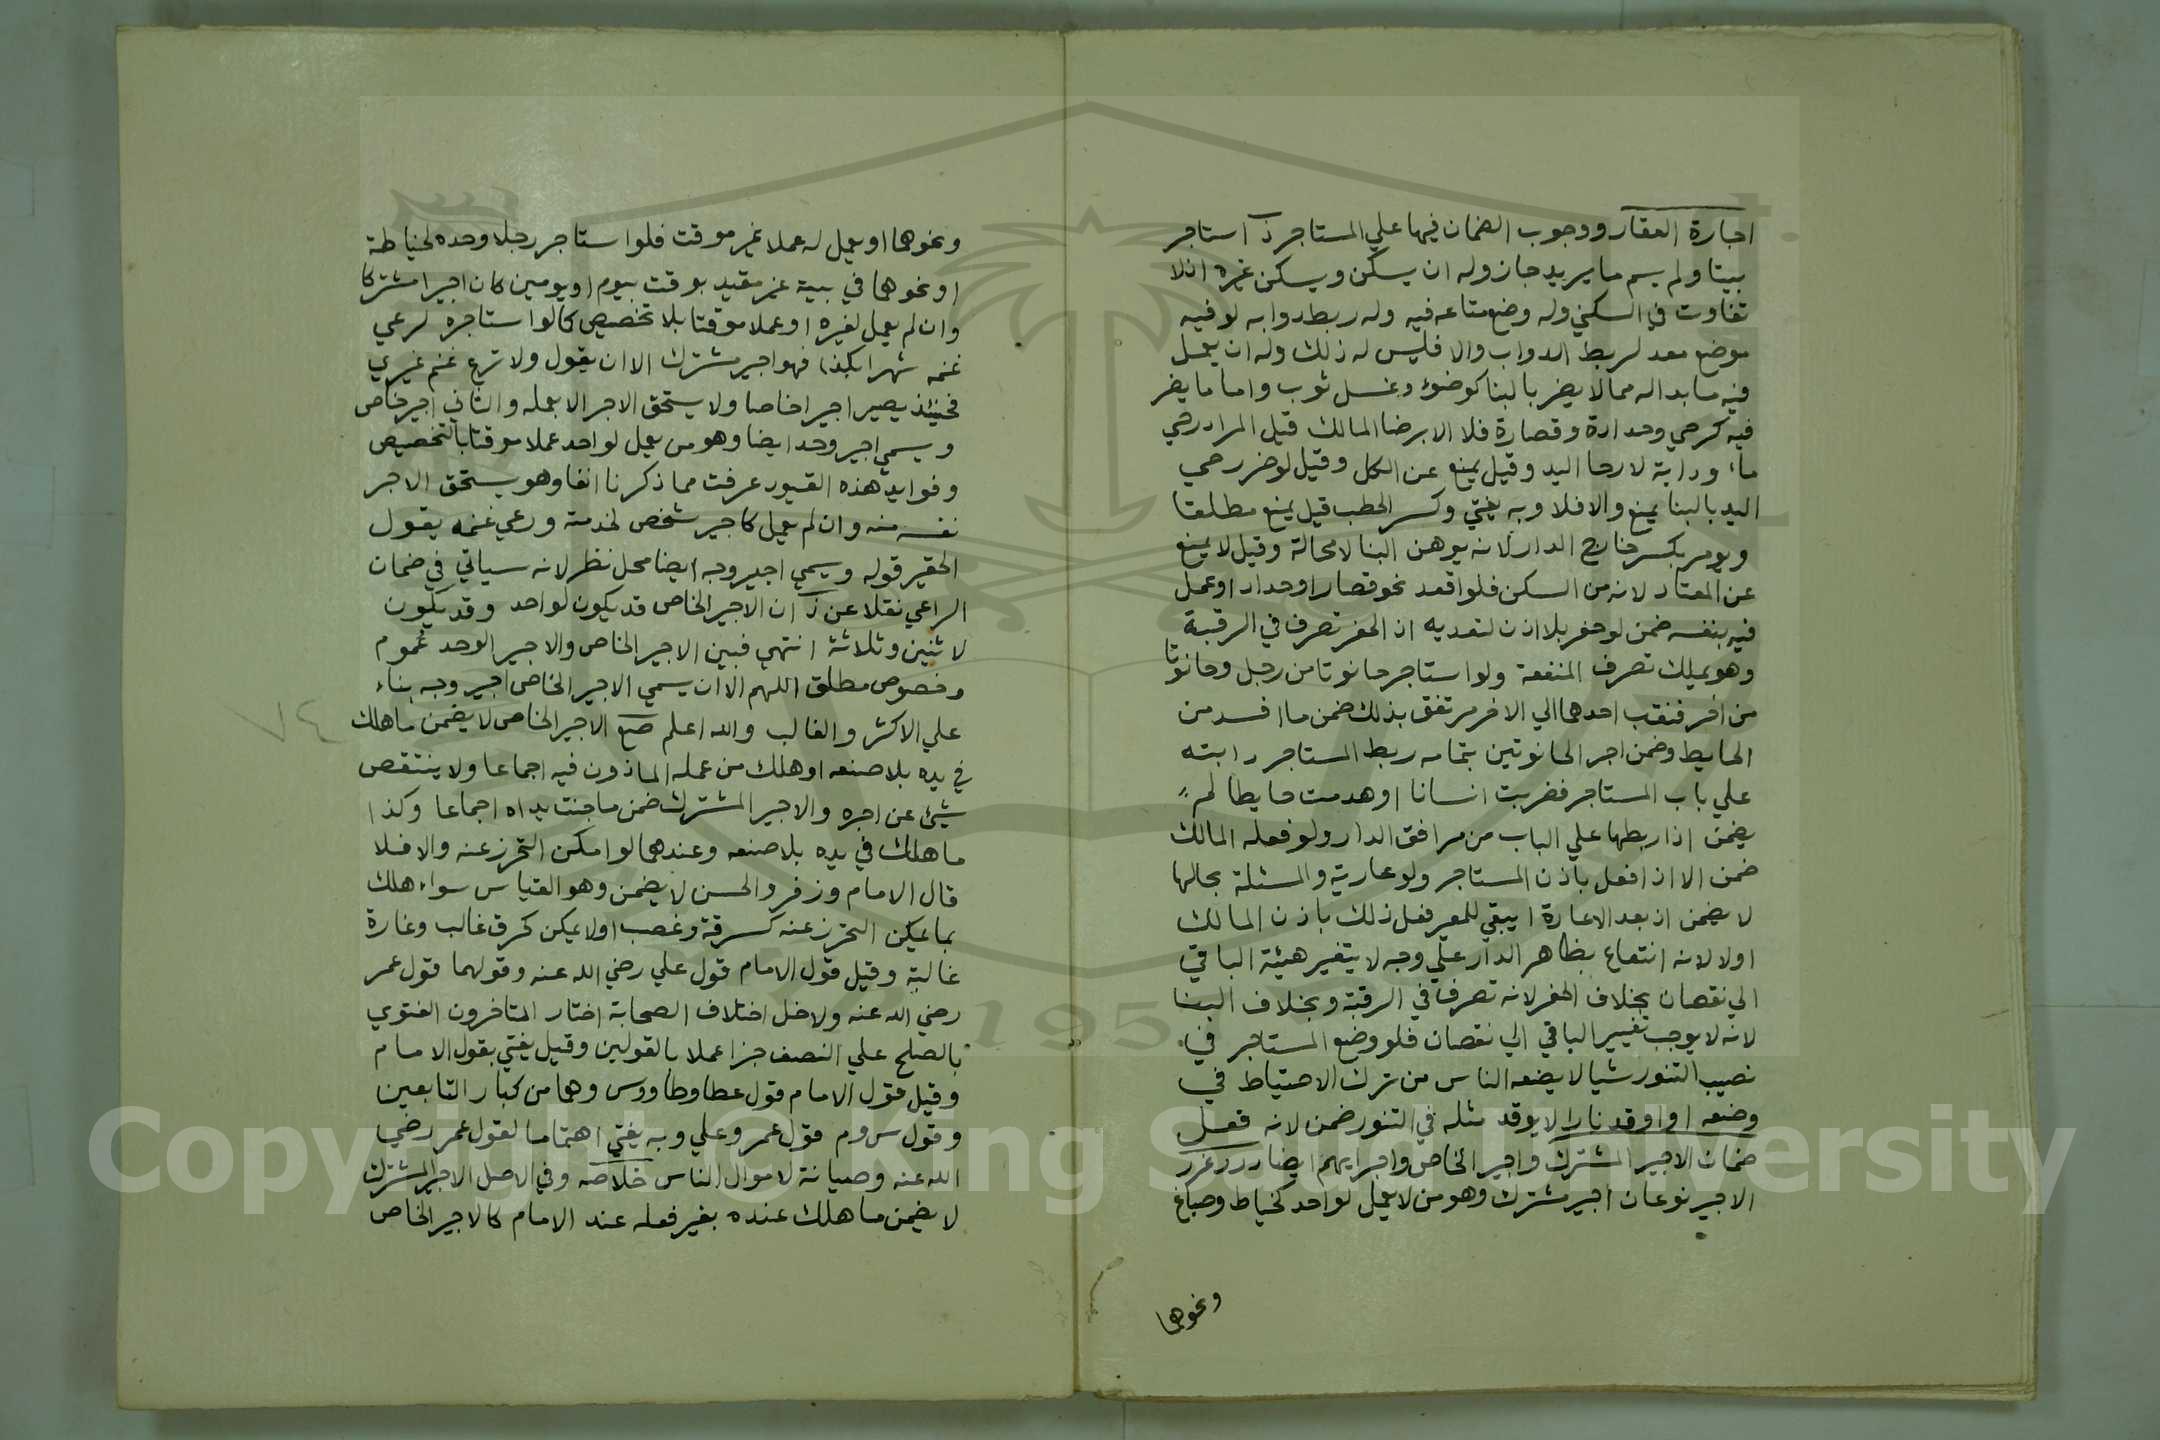 اجارة العقار ووجوب الضمان فيها علي المستاجر ذ استاجر
بيتا ولم يسم ما يريد جاز وله ان يسكن ويسكن غيره اذلا
تفاوت في السكني وله وضع متاعه فيه وله ربط دوابه لو فيه
موضع معد لربط الدواب والا فليس له ذلك وله ان يعمل
فيه ما بداله مما لا يضر بالبنا كوضوء وغسل ثوب واما ما يضر
فيه كرحي وحدادة وقصارة فلا الا برضا المالك قيل المراد رحي
ماء ودابة لا رحا اليد وقيل يمنع عن الكل وقيل لو ضر رحي
اليد بالبنا يمنع والا فلا وبه يفتي وكسر الحطب قيل يمنع مطلقا
ويومر بكسر خارج الدار لانه يوهن البنا لا محالة وقيل لا يمنع
عن المعتاد لانه من السكن فلو اقعد نحو قصار او حداد او عمل
فيه بنفسه ضمن لو حفر بلا اذن لتعديه اذ الحفر تصرف في الرقبة
وهو يملك تصرف المنفعة ولو استاجر حانوتا من رجل وحانوتا
من اخر فنقب احدهما الي الاخر مرتفق بذلك ضمن ما افسد من
الحايط وضمن اجر الحانوتين بتمامه ربط المستاجر دابته
علي باب المستاجر فضربت انسانا او هدمت حايطا لم
يضمن اذا ربطها علي الباب من مرافق الدار ولو فعله المالك
ضمن الا اذا فعل باذن المستاجر ولو عارية والمسئلة بحالها
لا يضمن اذ بعد الاعارة ايبقي للمعير فعل ذلك باذن المالك
اولا لانه انتفاع بظاهر الدار علي وجه لا يتغير هيئة الباقي
الي نقصان بخلاف الحفر لانه تصرف في الرقبة وبخلاف البنا
لانه لا يوجب تغيير الباقي الي نقصان فلو وضع المستاجر في
نصيب التنور شيا لا يضعه الناس من ترك الاحتياط في
وضعه او اوقد نارا لا يوقد مثله في التنور ضمن لانه فعل
ضمان الاجير المشترك واجير الخاص واجرايهم ايضا درر غرر
الاجير نوعان اجير مشترك وهو من لا يعمل لواحد كخياط وصباغ
ونحوها
ونحوهما او يعمل له عملا غير موقت فلو استاجر رجلا وحده لخياطة
او نحوهما في بيته غير مقيد بوقت بيوم او يومين كان اجيرا مشتركا
وان لم يعمل لغيره او عملا موقتا بلا تخصيص كما لو استاجره لرعي
غنمه شهرا بكذا فهو اجير مشترك الا ان يقول ولا ترع غنم غيري
فحينئذ يصير اجيرا خاصا ولا يستحق الاجر الا بعمله والثاني اجير خاص
ويسمي اجير وحد ايضا وهو من يعمل لواحد عملا موقتا بالتخصيص
وفوايد هذه القيود عرفت مما ذكرنا انفا وهو يستحق الاجر
نفسه منه وان لم يعمل كاجير شخص لخدمة ورعي غنمه يقول
الحقير قوله ويسمي اجير وحد ايضا محل نظر لانه سياتي في ضمان
الراعي نقلا عن ذ ان الاجير الخاص قد يكون لواحد وقد يكون
لاثنين وثلاثة انتهي فبين الاجير الخاص والاجير الوحد عموم
وخصوص مطلق اللهم الا ان يسمي الاجير الخاص اجير وجه بناء
علي الاكثر والغالب والله اعلم صع الاجير الخاص لا يضمن ما هلك
في يده بلا صنعه او هلك من عمله الماذون فيه اجماعا ولا ينتقص
شيئ عن اجره والاجير المشترك ضمن ما جنت يداه اجماعا وكذا
ما هلك في يده بلا صنعه وعندهما لو امكن التحرز عنه والا فلا
قال الامام وزفر والحسن لا يضمن وهو القياس سواء هلك
بما يمكن التحرز عنه كسرقة وغصب اولا يمكن كحرق غالب وغارة
غالبة وقيل قول الامام قول علي رضي الله عنه وقولهما قول عمر
رضي الله عنه ولاجل اختلاف الصحابة اختار المتاخرون الفتوي
بالصلح علي النصف جزا عملا بالقولين وقيل يفتي بقول الامام
وقيل قول الامام قول عطا وطاووس وهما من كبار التابعين
وقول س وم قول عمر وعلي وبه يفتي اهتماما لقول عمر رضي
الله عنه وصيانة لاموال الناس خلاصه وفي الاصل الاجير المشترك
لا يضمن ما هلك عنده بغير فعله عند الامام كالاجير الخاص
٧٤
1957
Copyright © King Saud University